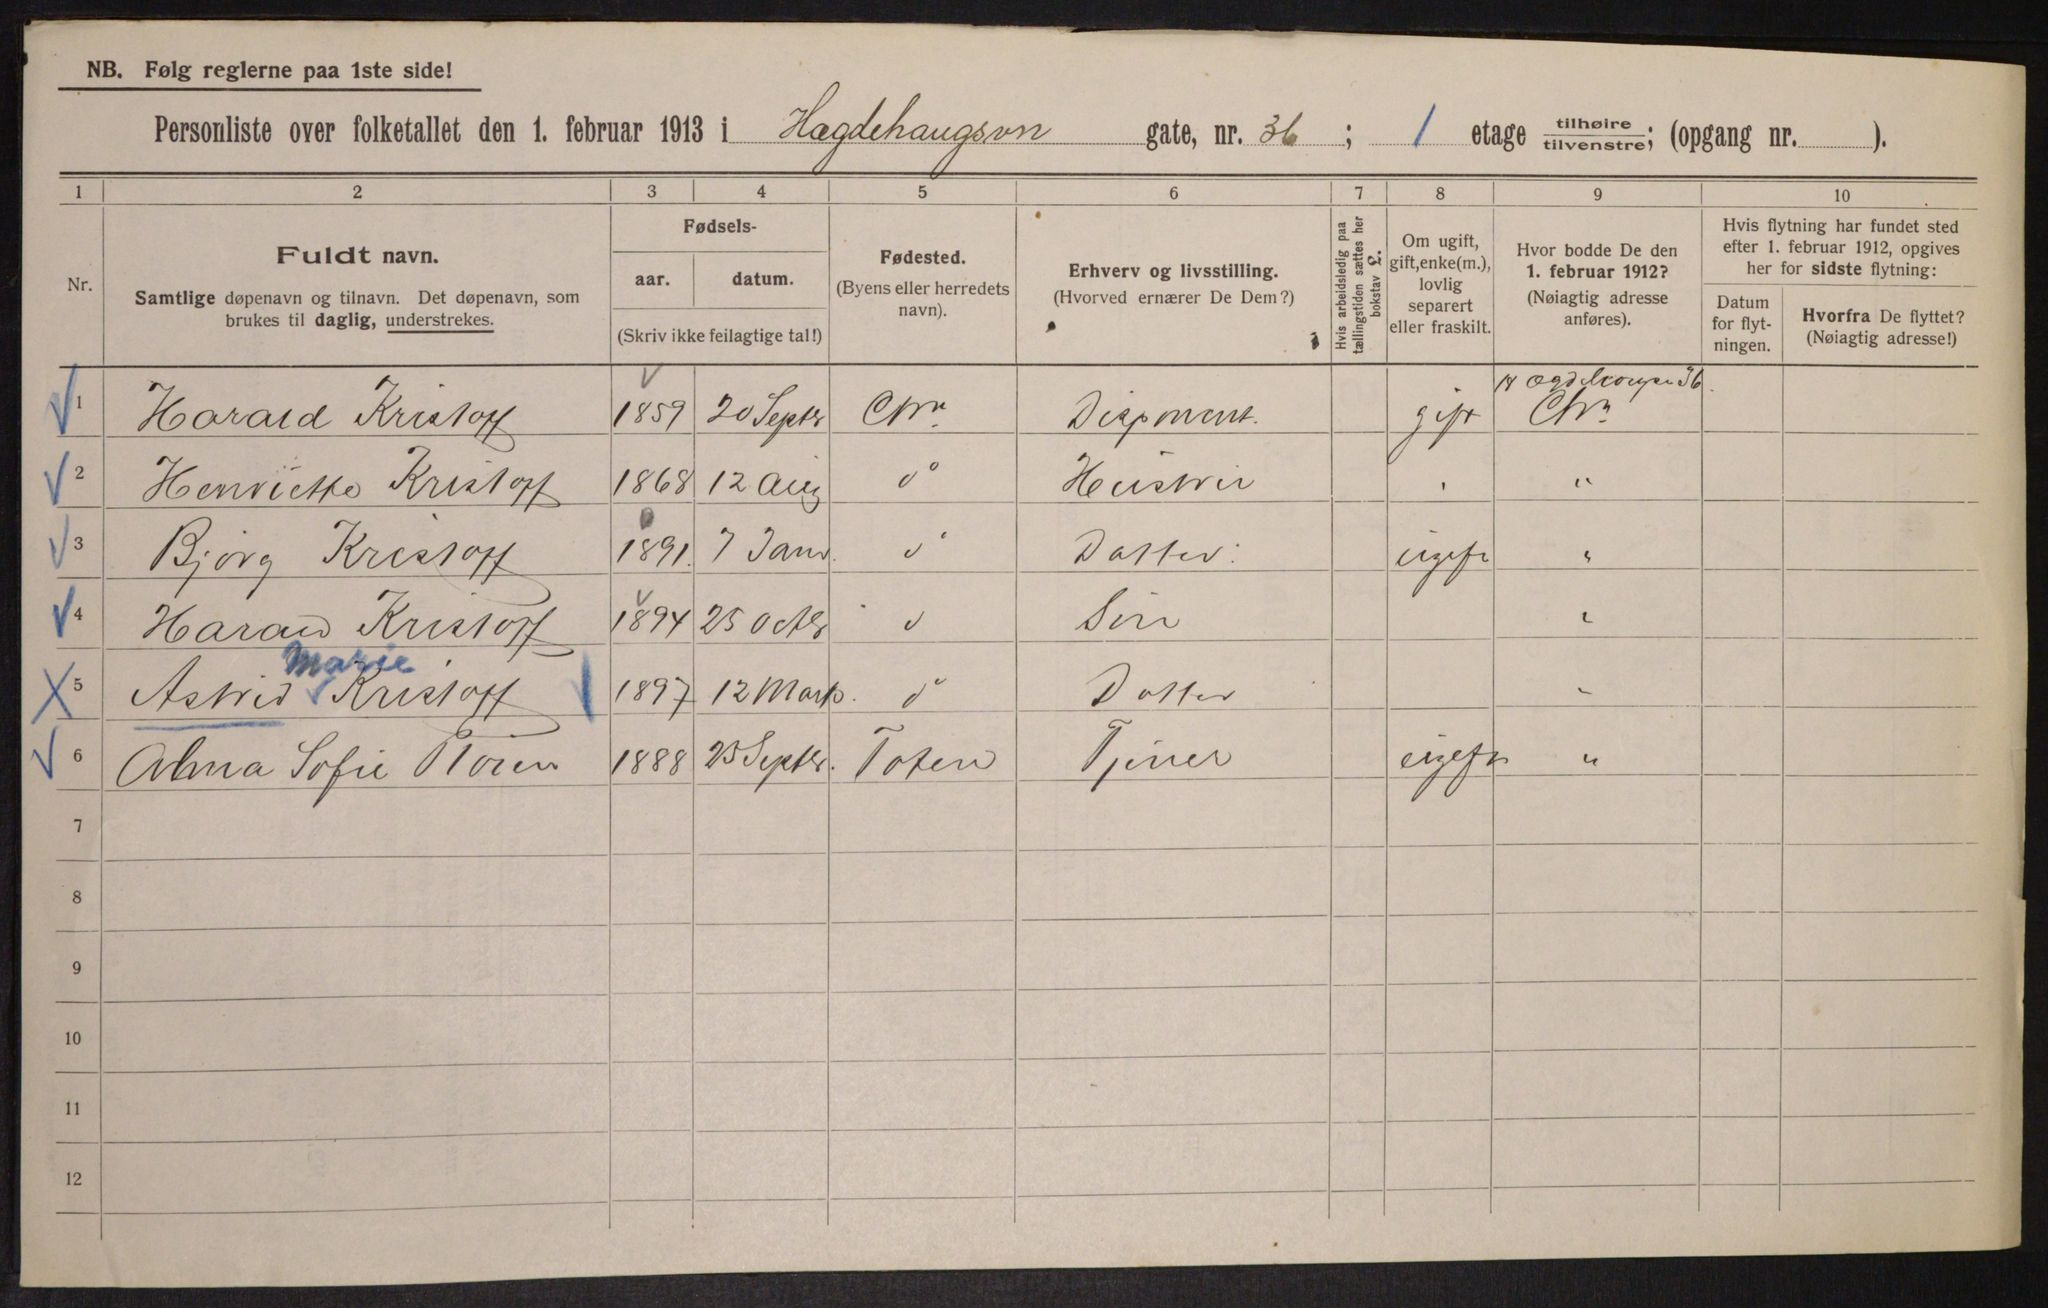 NB. Følg reglerne paa 1ste side!
Personliste over folketallet den 1. februar 1913 i Hægdehaugsvn gate, nr. 36; 1 etage tilhøire/tilvenstre; (opgang nr. ).
1 2 3 4 5 6 7 8 9 10
Nr.
Fuldt navn.
Samtlige døpenavn og tilnavn. Det døpenavn, som
brukes til daglig, understrekes.
Fødsels-
aar. datum.
(Skriv ikke feilagtige tal!)
Fødested.
(Byens eller herredets
navn).
Erhverv og livsstilling.
(Hvorved ernærer De Dem?)
Hvis arbeidsledig paa
tællingstiden sættes her
bokstav L.
Om ugift,
gift, enke(m.),
lovlig
separert
eller fraskilt.
Hvor bodde De den
1. februar 1912?
(Nøiagtig adresse
anføres).
Hvis flytning har fundet sted
efter 1. februar 1912, opgives
her for sidste flytning:
Datum
for flyt-
ningen.
Hvorfra De flyttet?
(Nøiagtig adresse!)
1 Harald Kristoff 1859 20 Septr Chra. Disponent. gift Chra
2 Henriette Kristoff 1868 12 Aug do Hustru " "
3 Bjørg Kristoff 1891. 7 Janr. do Datter. ugift "
4 Harald Kristoff 1894 25 Octbr do Søn "
Marie
5 Astrid Kristoff 1897 12 Marts. do Datter "
6 Alma Sofie 1888 25 Septbr. Toten Tjener ugift "
7
8
9
10
11
12